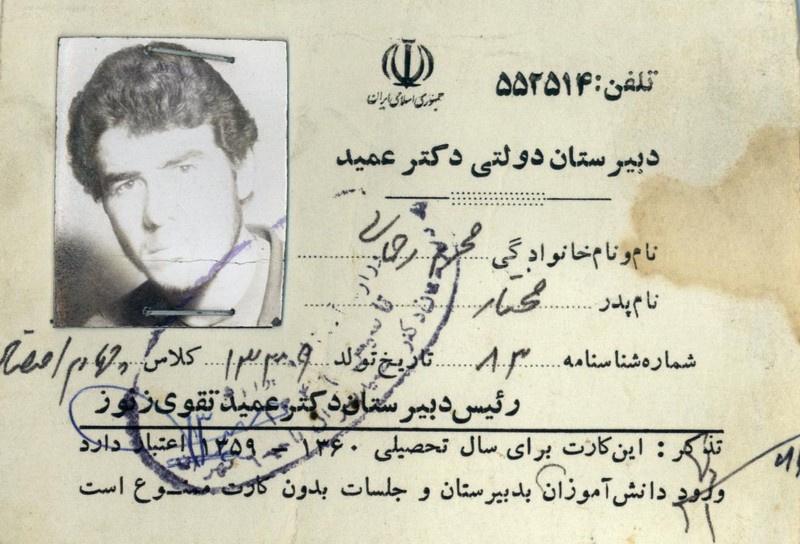 جمهوری اسلامی ایران
تلفن: ۵۵۲۵۱۴
دبیرستان دولتی دکتر عمید
نام و نام خانوادگی محرم
نام پدر مختار
شماره شناسنامه ۸۳ تاریخ تولد کلاس چهارم
رئیس دبیرستان دکتر عمید تقوی زنوز
تذکر: این کارت برای سال تحصیلی ۱۳۶۰ – ۱۳۵۹ اعتبار دارد
ورود دانش‌آموزان بدبیرستان و جلسات بدون کارت ممنوع است